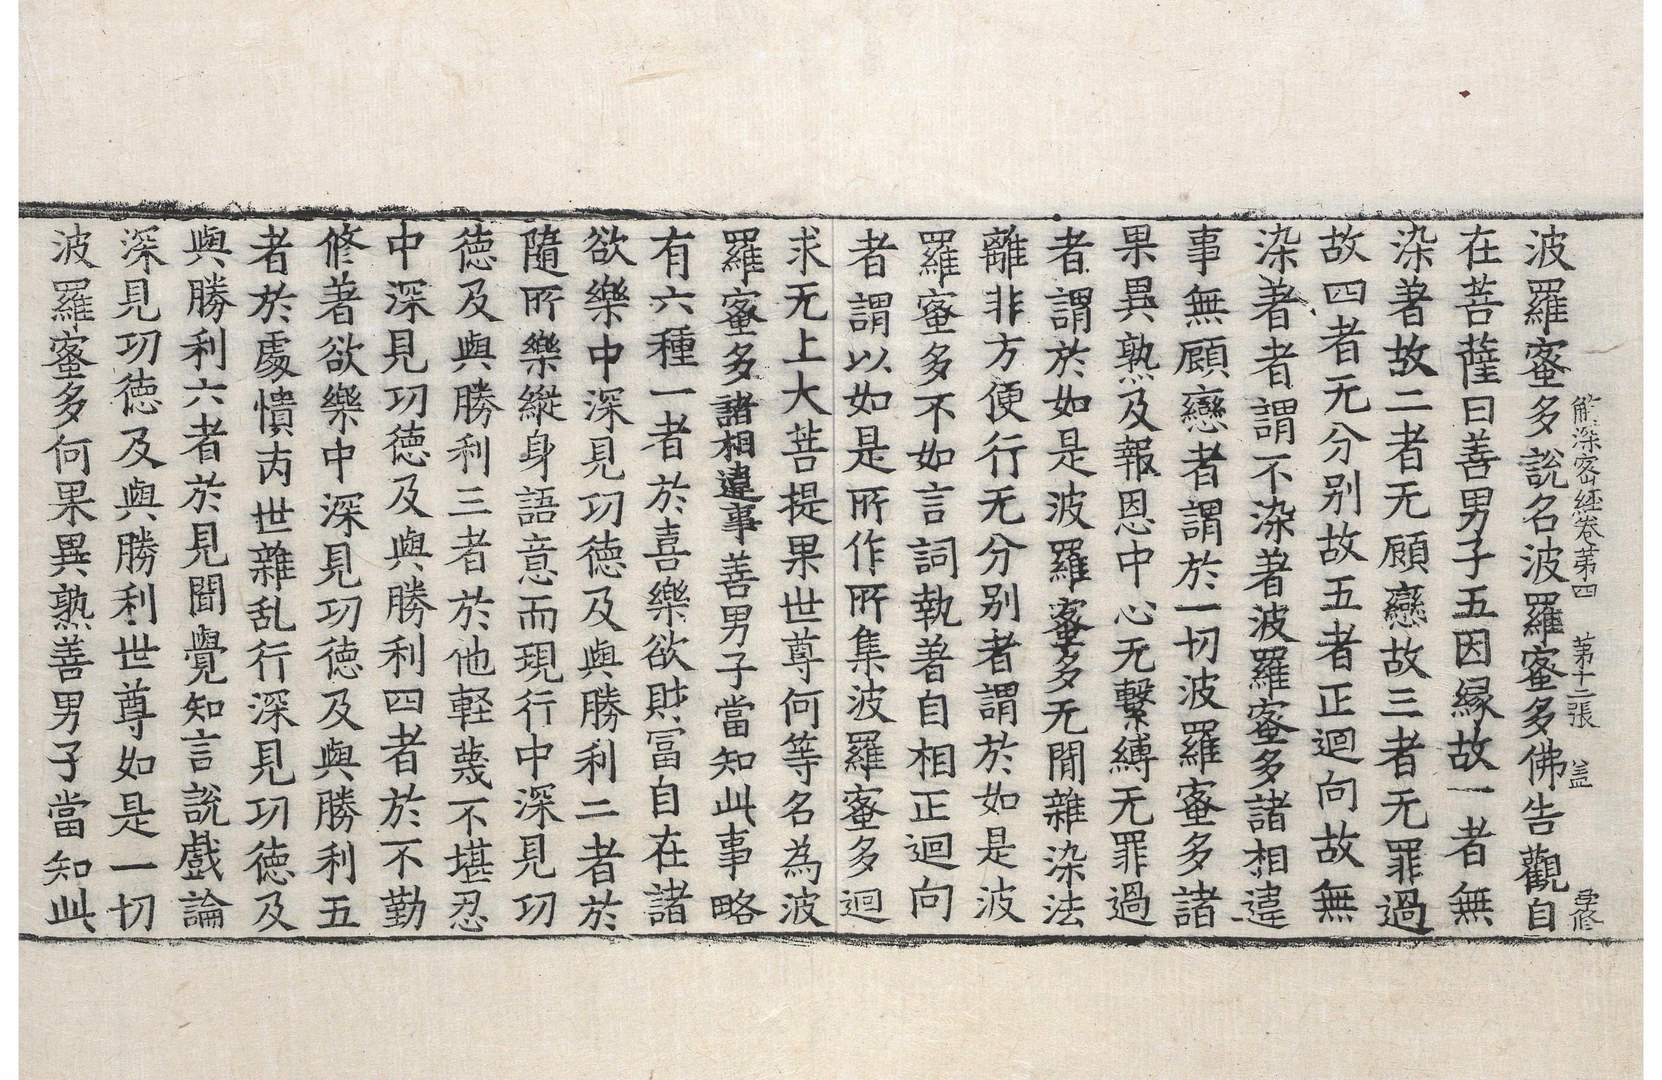 解深密經卷第四 第十二張 盖
波羅蜜多說名波羅蜜多佛告觀自
在菩薩曰善男子五因縁故一者無
染著故二者无顧戀故三者无罪過
故四者无分别故五者正迴向故無
染著者謂不染著波羅蜜多諸相違
事無顧戀者謂於一切波羅蜜多諸
果異熟及報恩中心无繫縛无罪過
者謂於如是波羅蜜多无間雜染法
離非方便行无分别者謂於如是波
羅蜜多不如言詞執著自相正迴向
者謂以如是所作所集波羅蜜多迴
求无上大菩提果世尊何等名為波
羅蜜多諸相違事善男子當知此事略
有六種一者於喜樂欲財冨自在諸
欲樂中深見功德及與勝利二者於
隨所樂縱身語意而現行中深見功
德及與勝利三者於他軽蔑不堪忍
中深見功德及與勝利四者於不勤
修著欲樂中深見功德及與勝利五
者於處憒丙世雜乱行深見功德及
與勝利六者於見聞覺知言說戲論
深見功德及與勝利世尊如是一切
波羅蜜多何果異熟善男子當知此